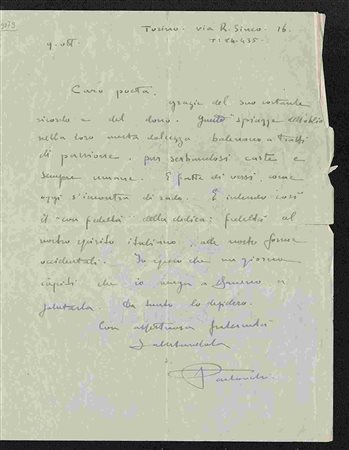 Torino - via R. Sineo. 16.
9. ott.
Caro poeta,
grazie del suo costante
ricordo e del dono. Queste spiagge dell'oblio
nella loro muta dolcezza balenano a tratti
di passione, pur serbandosi caste e
sempre umane. È fatta di versi, come
oggi s'incontra di rado. E intendo così
il "con fedeltà" della dedica: fedeltà al
nostro spirito italiano, alle nostre forme
occidentali. Io spero che un giorno
capiti che io venga a Salerno a
salutarla. Da tanto lo desidero.
Con affettuosa fraternità
salutandola